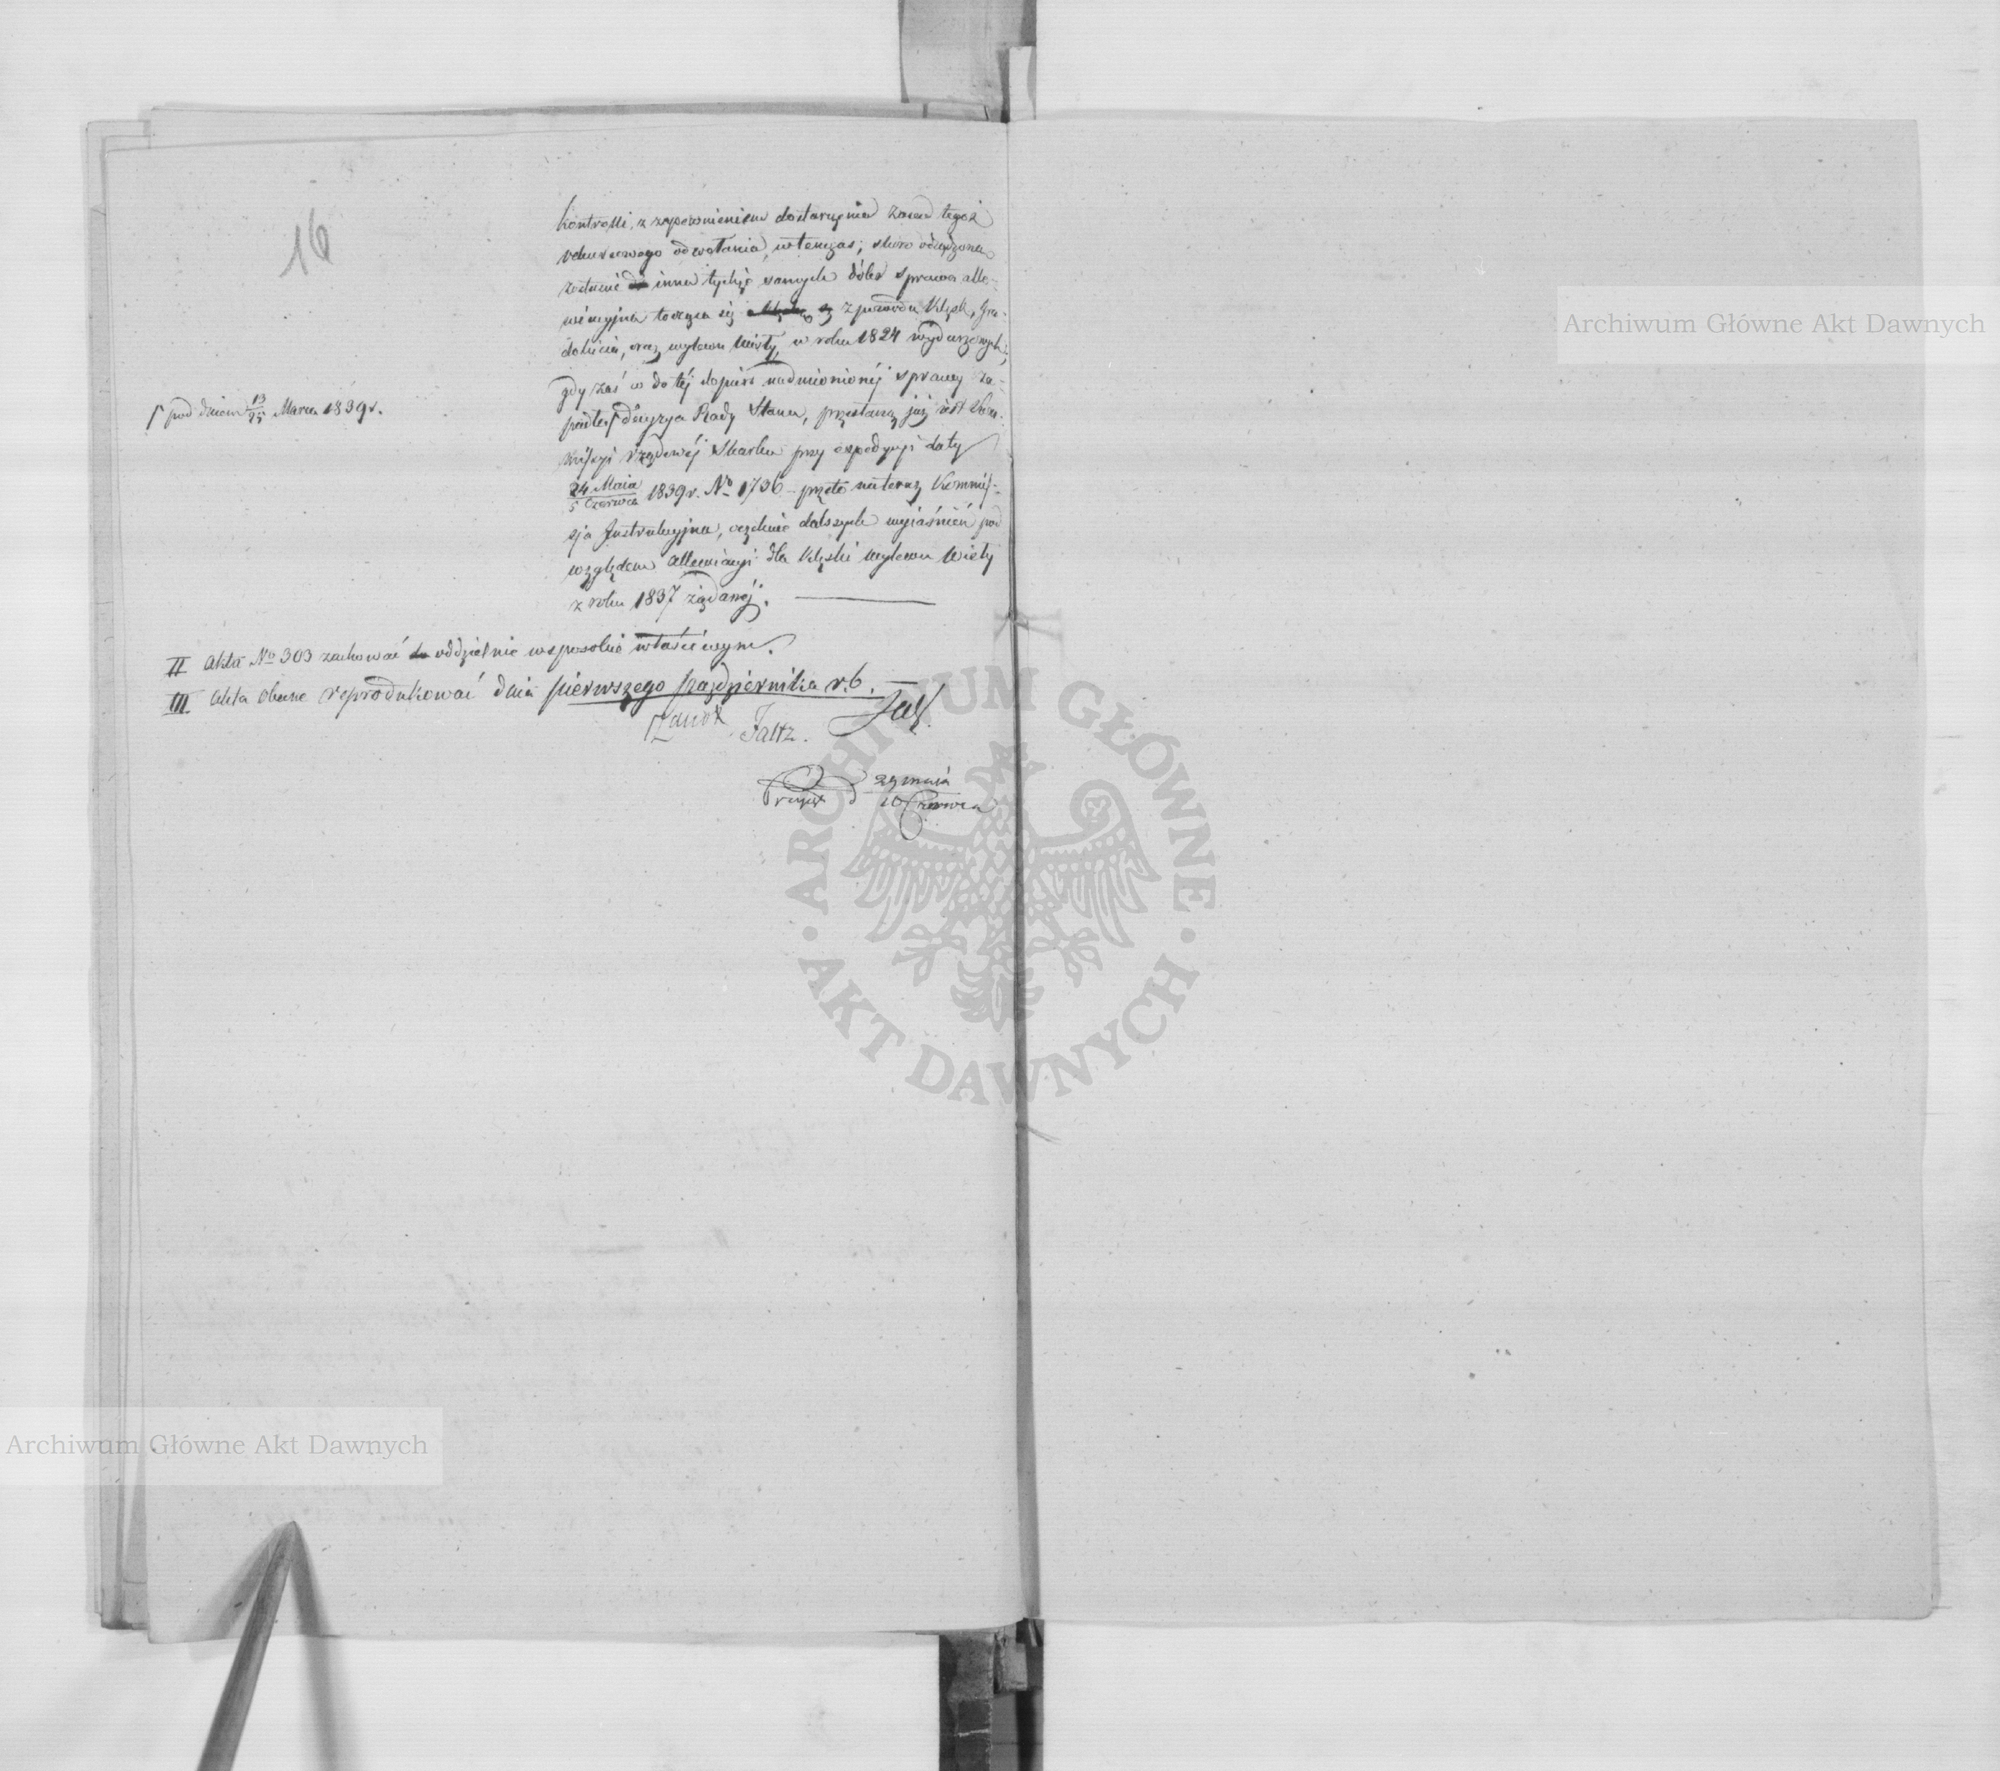 16
Kontrolli, z zapewnieniem dostarczenia zasad tegoż
rekursowego odwołania, wtenczas, skoro osądzona
zostanie inna tychże samych dóbr sprawa alle-
wiacyjna tocząca się z powodu klęsk, Gra-
dobicia, oraz wylewu Wisły, w roku 1824 wydarzonych;
gdy zaś w do tej dopiero nadmienionéj sprawy za-
padła Γ decyzya Rady Stanu, przesłaną już jest Kom-
missyi Rządowéj Skarbu przy expedycyi daty
Γ pod dniem 13/25 Marca 1839 r.
24 Maia / 5 Czerwca 1839 r. No 1736 – przeto na teraz Kommis-
sja Instrukcyjna, oczekuie dalszych wyiaśnień pod
względem allewiacyi dla klęski wylewu Wisły
z roku 1837 żądanéj.
II Akta No 303 zachować oddzielnie w sposobie właściwym.
III Akta obecne reprodukować dnia pierwszego Października r. b.
Faltz.
29 maia
Przyjął d 10 Czerwca
ARCHIWUM GŁÓWNE AKT DAWNYCH
Archiwum Główne Akt Dawnych
Archiwum Główne Akt Dawnych